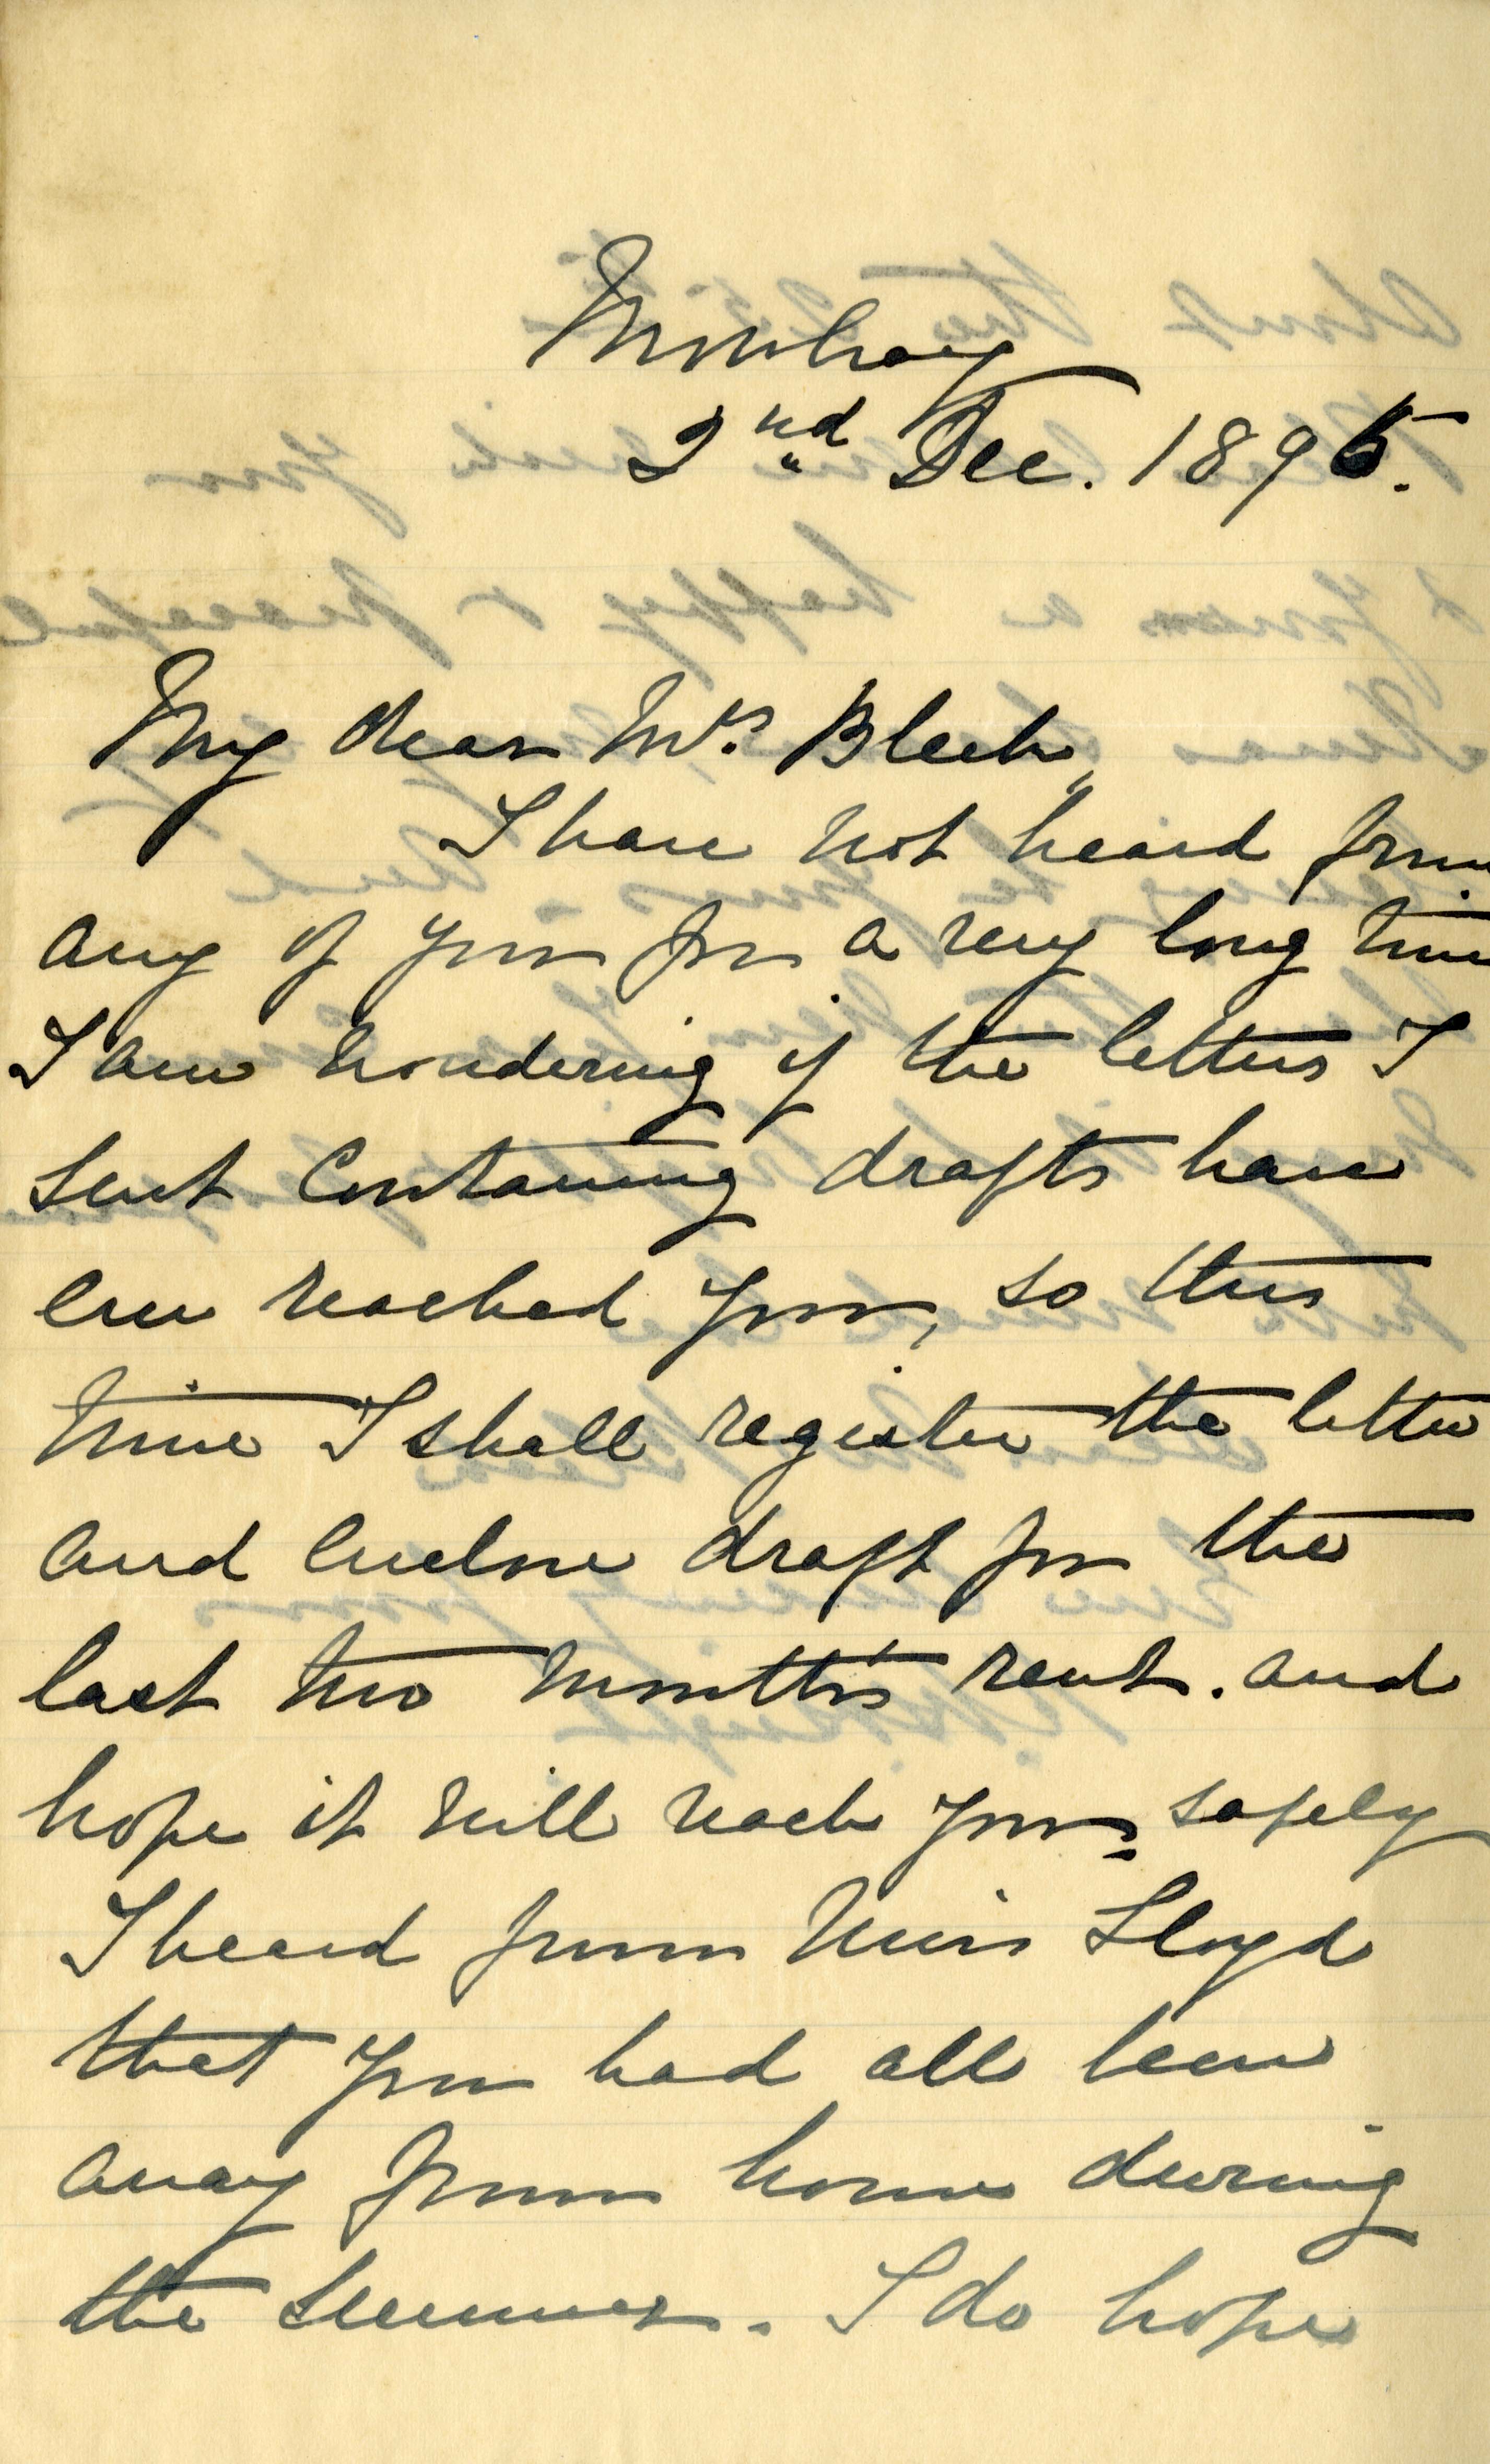 Mowbray
2nd Dec. 1895.
My dear Mrs. Bleek,
I have not heard from
any of you for a very long time
I am wondering if the letters I
sent containing drafts have
ever reached you, so this
time I shall register the letter
and enclose draft for the
last two month's rent. and
hope it will reach you safely
I heard from Miss Lloyd
that you had all been
away from home during
the summer. I do hope